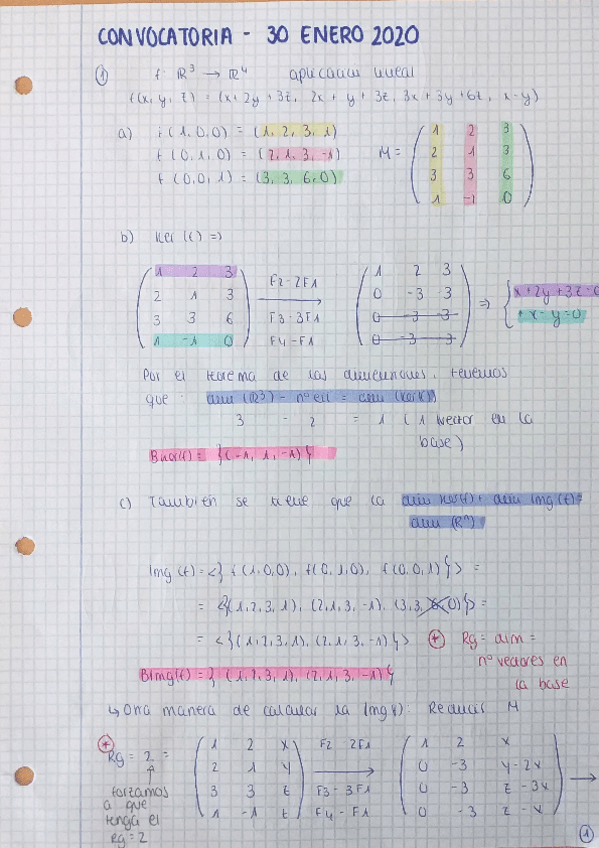 CONVOCATORIA - 30 ENERO 2020
① f: R³ → R⁴ aplicación lineal
f(x, y, z) = (x+2y+3z, 2x+y+3z, 3x+3y+6z, x-y)
a) f(1,0,0) = (1, 2, 3, 1)
f(0,1,0) = (2, 1, 3, -1)
f(0,0,1) = (3, 3, 6, 0)
M =
1 2 3
2 1 3
3 3 6
1 -1 0
b) Ker(f) =>
1 2 3
2 1 3
3 3 6
1 -1 0
F2-2F1
F3-3F1
F4-F1
1 2 3
0 -3 -3
0 -3 -3
0 -3 -3
=> { x+2y+3z=0
x-y=0
Por el teorema de las dimensiones, tenemos
que: dim(R³) - nº ell = dim(Ker f)
3 - 2 = 1 (1 vector en la
base)
BKer(f) = {(-1, 1, -1)}
c) También se tiene que la dim Ker(f) + dim Img(f) =
dim(Rⁿ)
Img(f) = <{f(1,0,0), f(0,1,0), f(0,0,1)}> =
= <{(1,2,3,1), (2,1,3,-1), (3,3,6,0)}> =
= <{(1,2,3,1), (2,1,3,-1)}> * Rg = dim =
nº vectores en
la base
BImg(f) = {(1,2,3,1), (2,1,3,-1)}
↳ Otra manera de calcular la Img(f): Reducir M
* Rg = 2 =
↑
forzamos
a que
tenga el
rg = 2
1 2 x
2 1 y
3 3 z
1 -1 t
F2 2F1
F3-3F1
F4-F1
1 2 x
0 -3 y-2x
0 -3 z-3x
0 -3 z-x
→
①